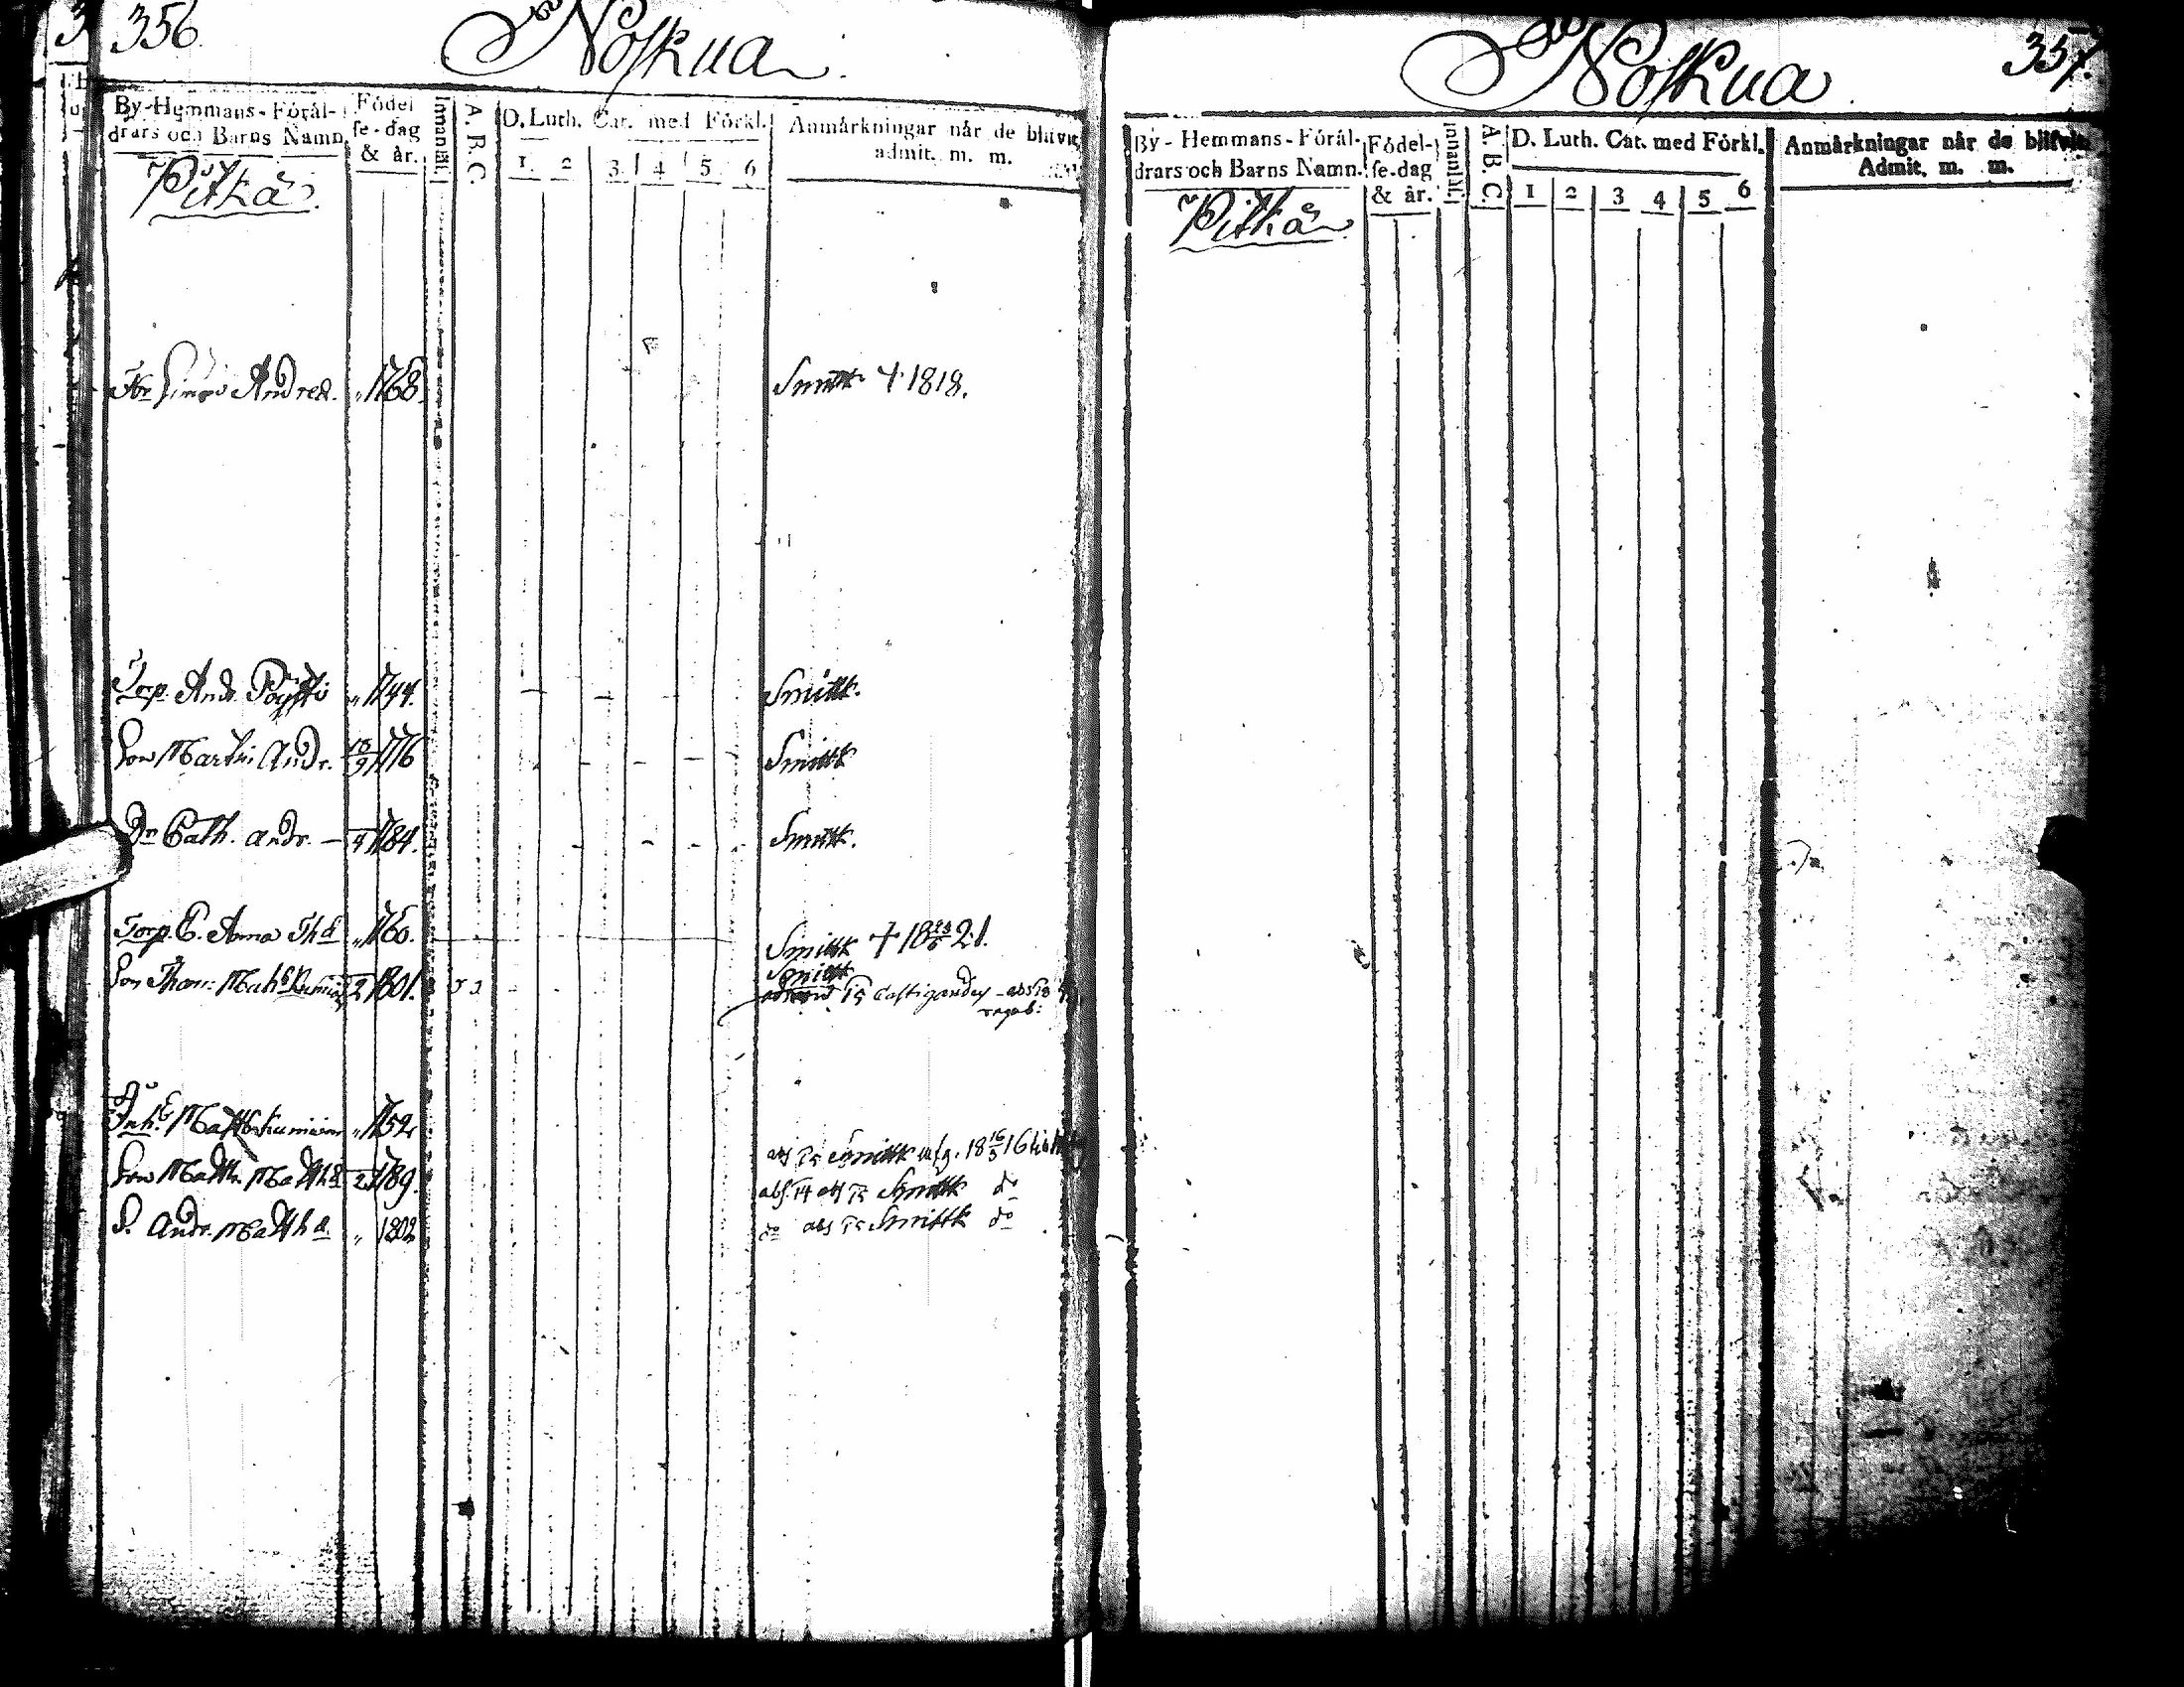 356.
Noskua
By-Hemmans-Förål-
drars och Barns Namn.
Födel
se-dag
& år.
Innanläs.
A. B. C.
D. Luth. Cat. med Förkl.
1. 2 3 4 5 6
Anmärkningar når de blifvit
admit. m. m.
Pitkä
Andrea. " 1768. Smittk. † 1818.
Torp. And. Pöysti " 1744. Smittk.
Son Martin Andr. 1776 Smittk
Dr Cath. Andr. – 1784. Smittk.
Torp. E. Anna Th d " 1760. Smittk † 18 21.
Son Thom. 1801. Smittk
15 Castigandus – abs 18
" 1752. abs 15 Smittk 18 16/3 16
Son Matth. Matth s. 1789. abs. 14 abs 15 Smittk do
S. Andr. Matth s. " 1802 do abs 15 Smittk do
357.
Noskua
By-Hemmans-Förål-
drars och Barns Namn.
Födel-
se-dag
& år.
Innanläs.
A. B. C.
D. Luth. Cat. med Förkl.
1 2 3 4 5 6
Anmärkningar når de blifvit
Admit. m. m.
Pitkä